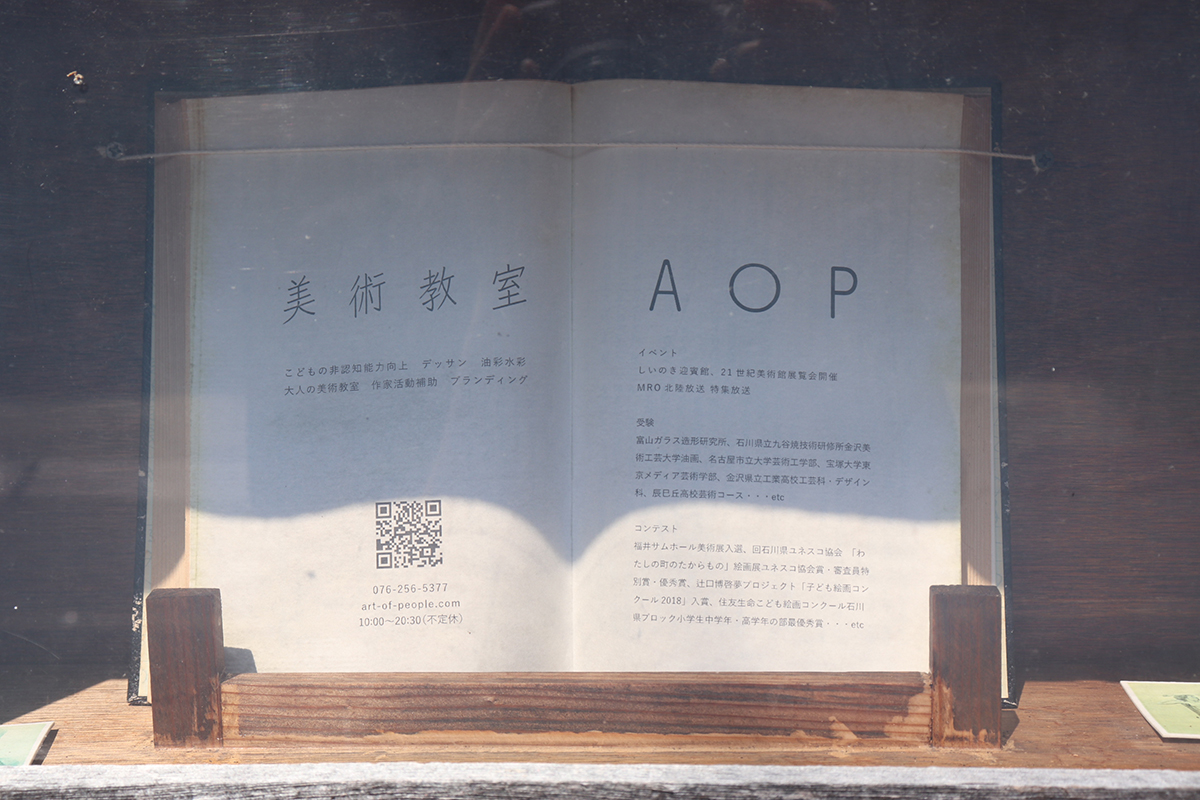 美術教室
こどもの非認知能力向上　デッサン　油彩水彩
大人の美術教室　作家活動補助　ブランディング
076-256-5377
art-of-people.com
10:00〜20:30(不定休)
AOP
イベント
しいのき迎賓館、21世紀美術館展覧会開催
MRO北陸放送 特集放送
受験
富山ガラス造形研究所、石川県立九谷焼技術研修所金沢美
術工芸大学油画、名古屋市立大学芸術工学部、宝塚大学東
京メディア芸術学部、金沢県立工業高校工芸科・デザイン
科、辰巳丘高校芸術コース・・・etc
コンテスト
福井サムホール美術展入選、回石川県ユネスコ協会　「わ
たしの町のたからもの」絵画展ユネスコ協会賞・審査員特
別賞・優秀賞、辻口博啓夢プロジェクト「子ども絵画コン
クール2018」入賞、住友生命こども絵画コンクール石川
県ブロック小学生中学年・高学年の部最優秀賞・・・etc